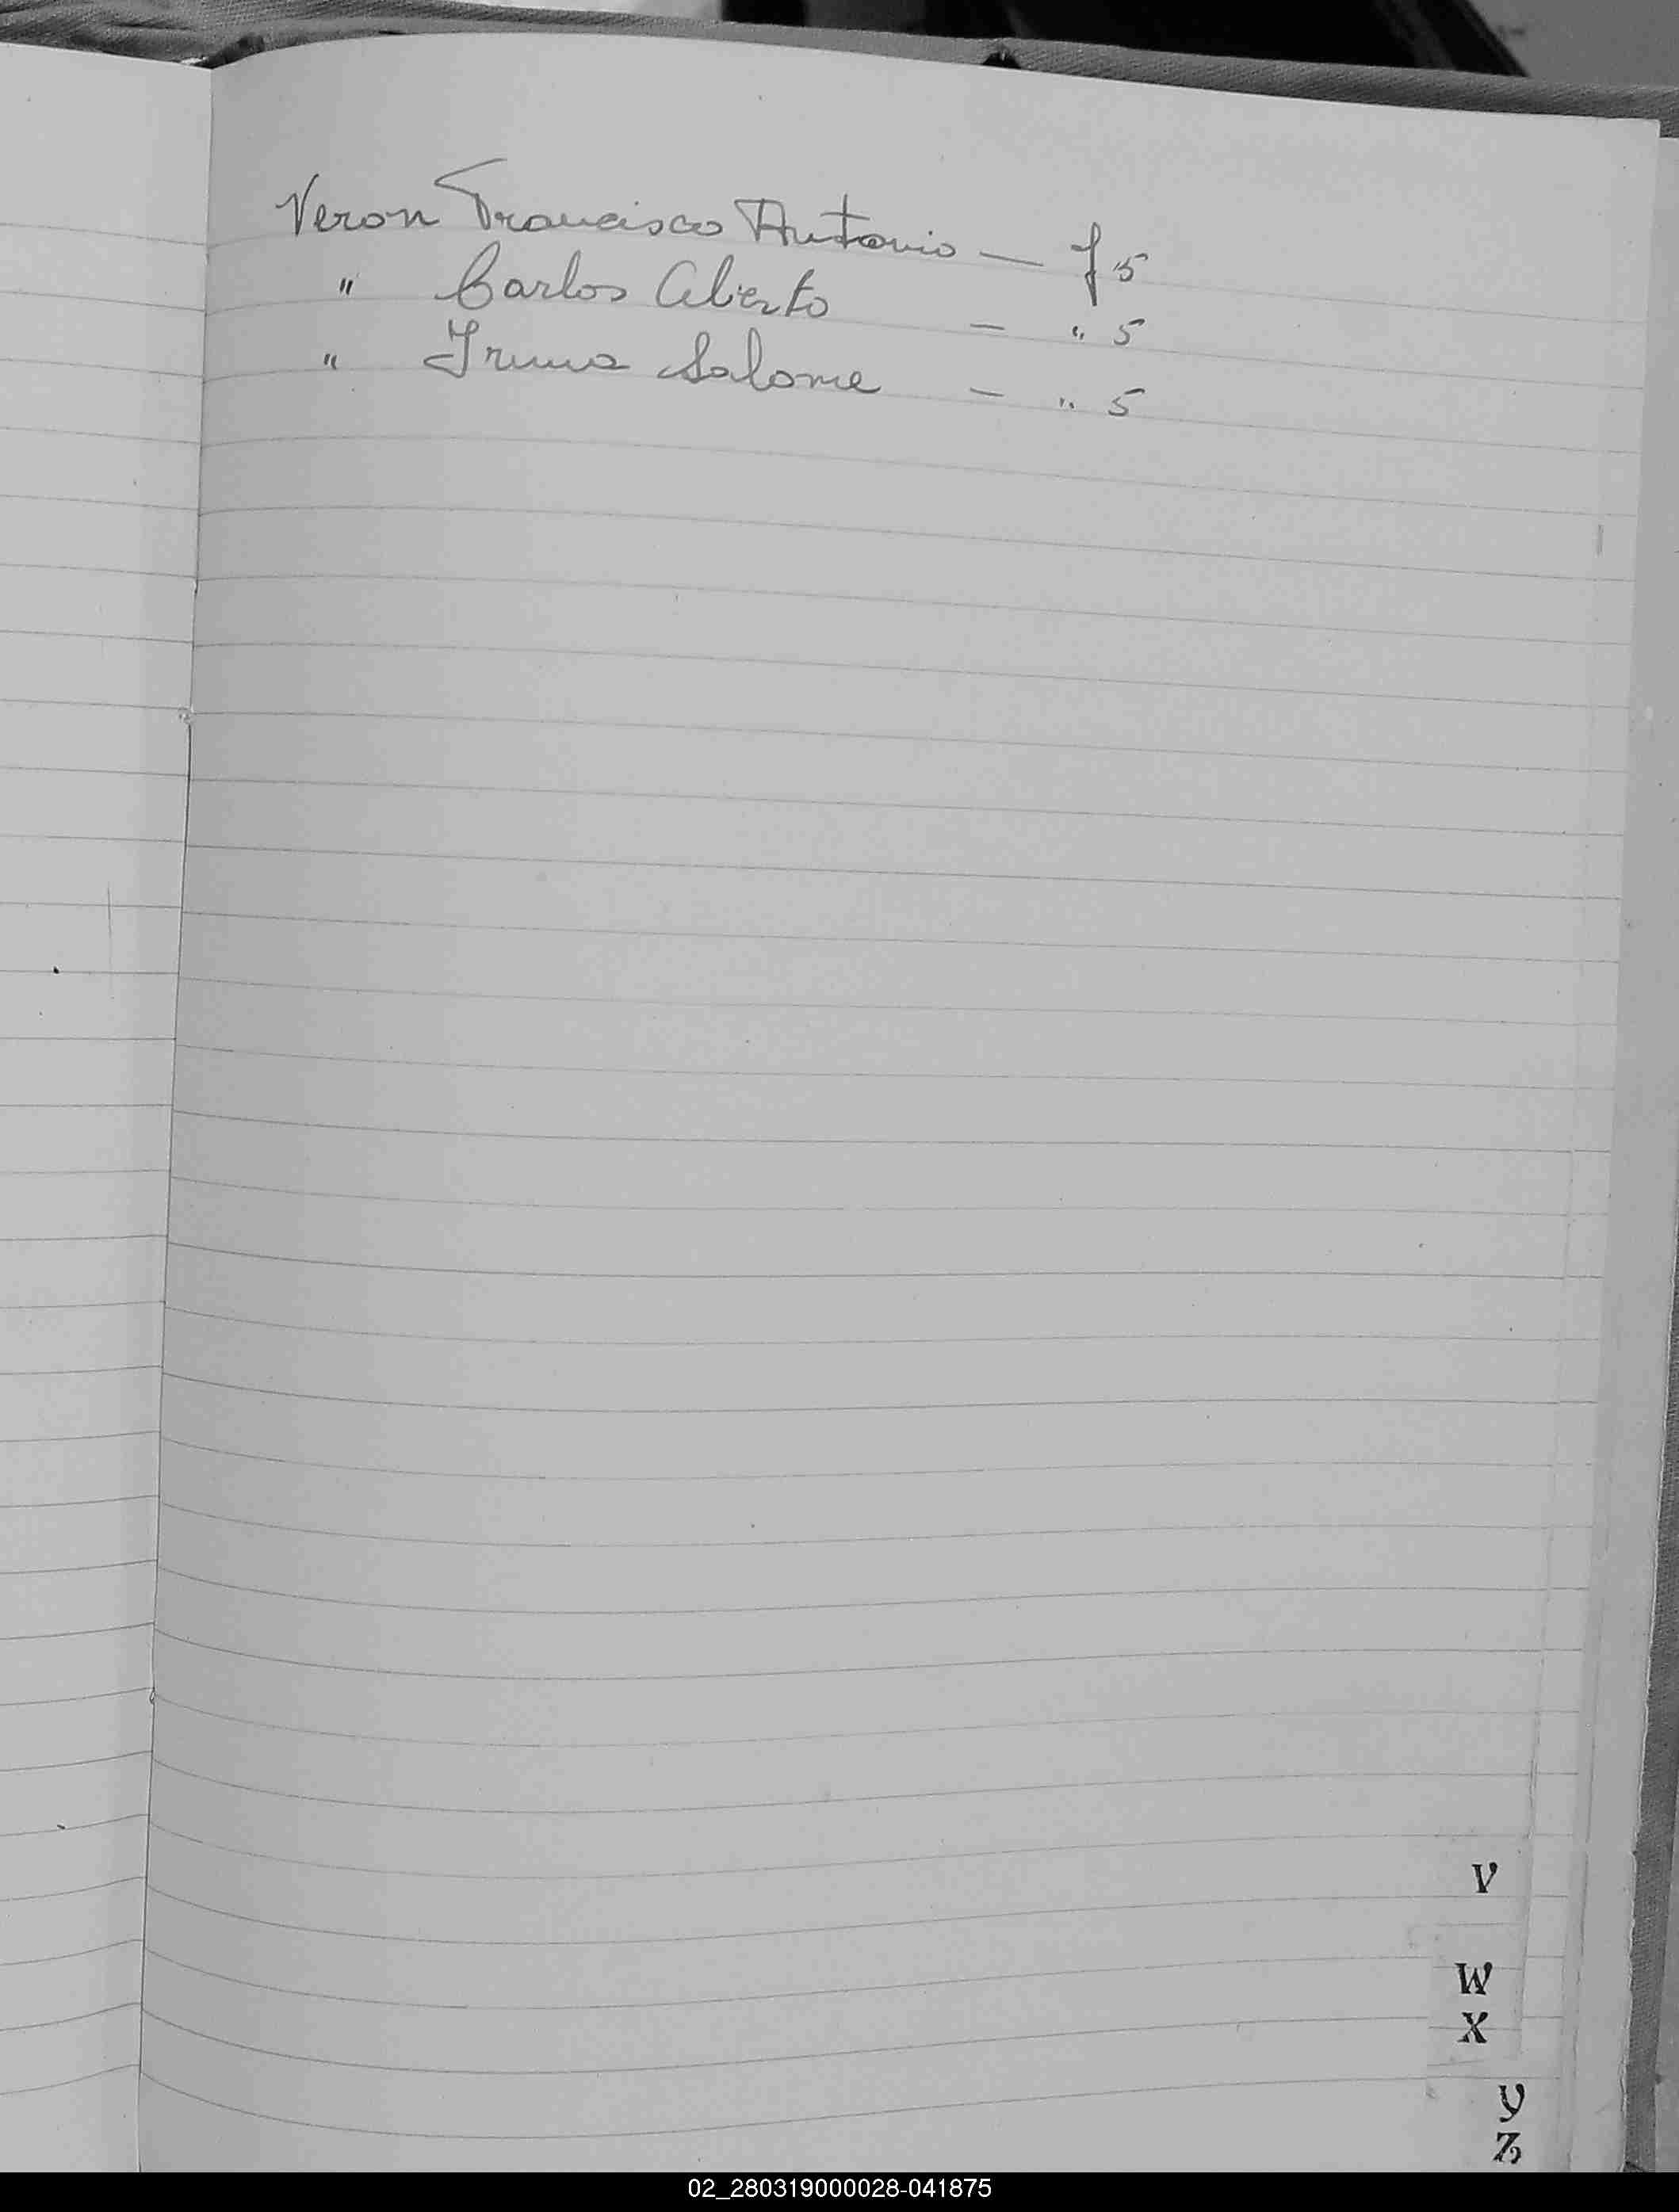 Veron Francisco Antonio — f 5
" Carlos Alberto — " 5
" Irma Salome — " 5
V
W
X
Y
Z
02_280319000028-041875